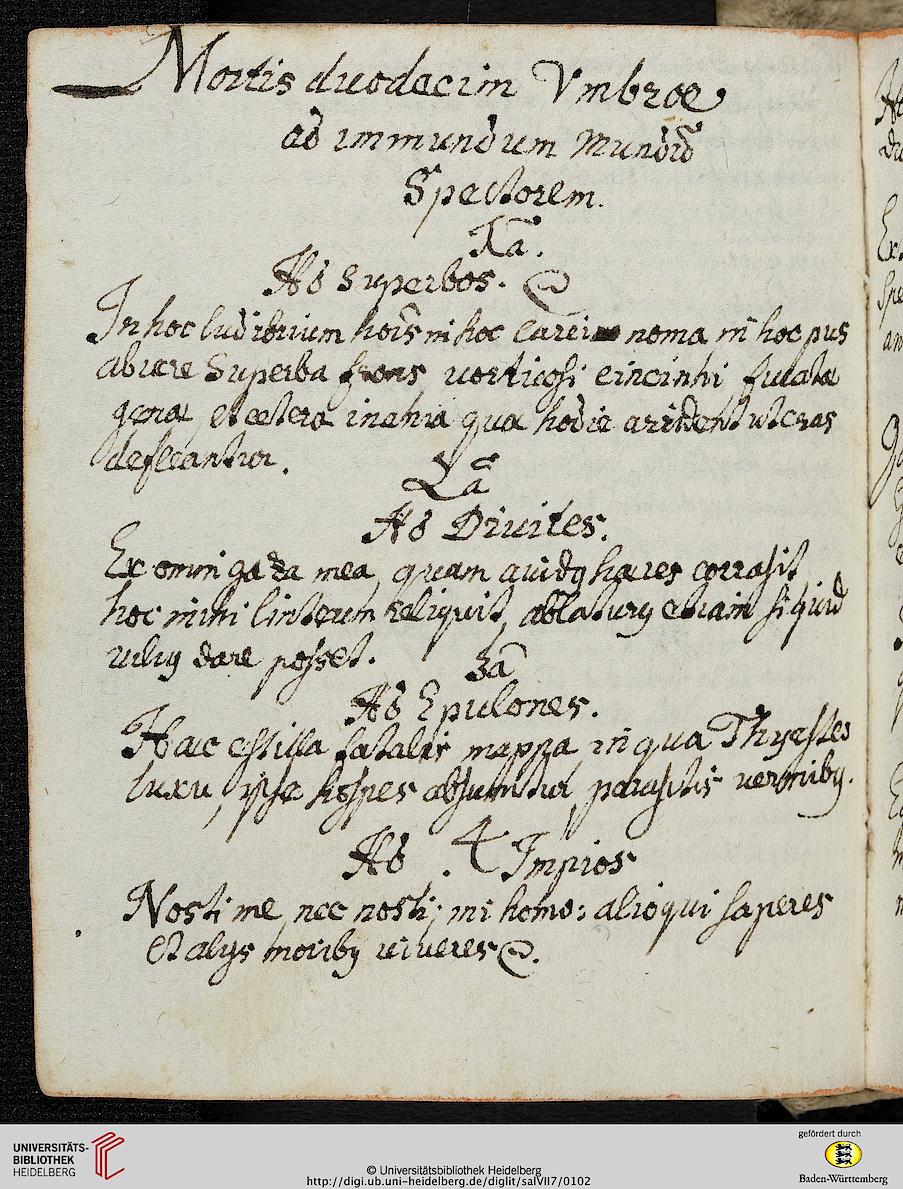 Mortis duodecim Vmbrae
ad immundum Mundũ
Spectorem.
1ã.
Ad Superbos.
In hoc ludibrium hoĩs in hoc noma in hoc pus
abiere Superba frons uorticosi cincinni fucata
genae et cetera inania quae hodie arrident ut cras
defleantur.
2ã
Ad Diuites.
Ex omni gaza mea, quam auidq haeres corrasit
hoc mihi linteum reliquit, ablaturq etiam si quid
uiliq dare posset.
3ã
Ad Epulones.
Haec est illa fatalis mappa, in qua Thyestes
luxu, ipse hospes absumitur, parasitis vermibq.
Ad .4 Impios
Nosti me, nec nosti; mi homo: alioqui saperes
Et alijs moribq uiueres.
UNIVERSITÄTS-
BIBLIOTHEK
HEIDELBERG
© Universitätsbibliothek Heidelberg
http://digi.ub.uni-heidelberg.de/diglit/salVII7/0102
gefördert durch
Baden-Württemberg